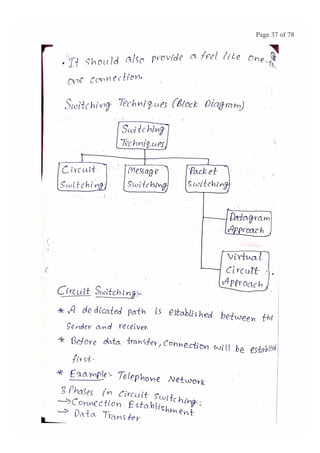 Page 37 of 78
• It should also provide a feel like one-to-
one connection.
Switching Techniques (Block Diagram)
Switching
Techniques
Circuit
Switching
Message
Switching
Packet
Switching
Datagram
Approach
Virtual
Circuit
Approach
Circuit Switching:-
* A dedicated path is established between the
Sender and receiver
* Before data transfer, connection will be established
first.
* Example:- Telephone Network
3 Phases in Circuit Switching:
→ Connection Establishment
→ Data Transfer